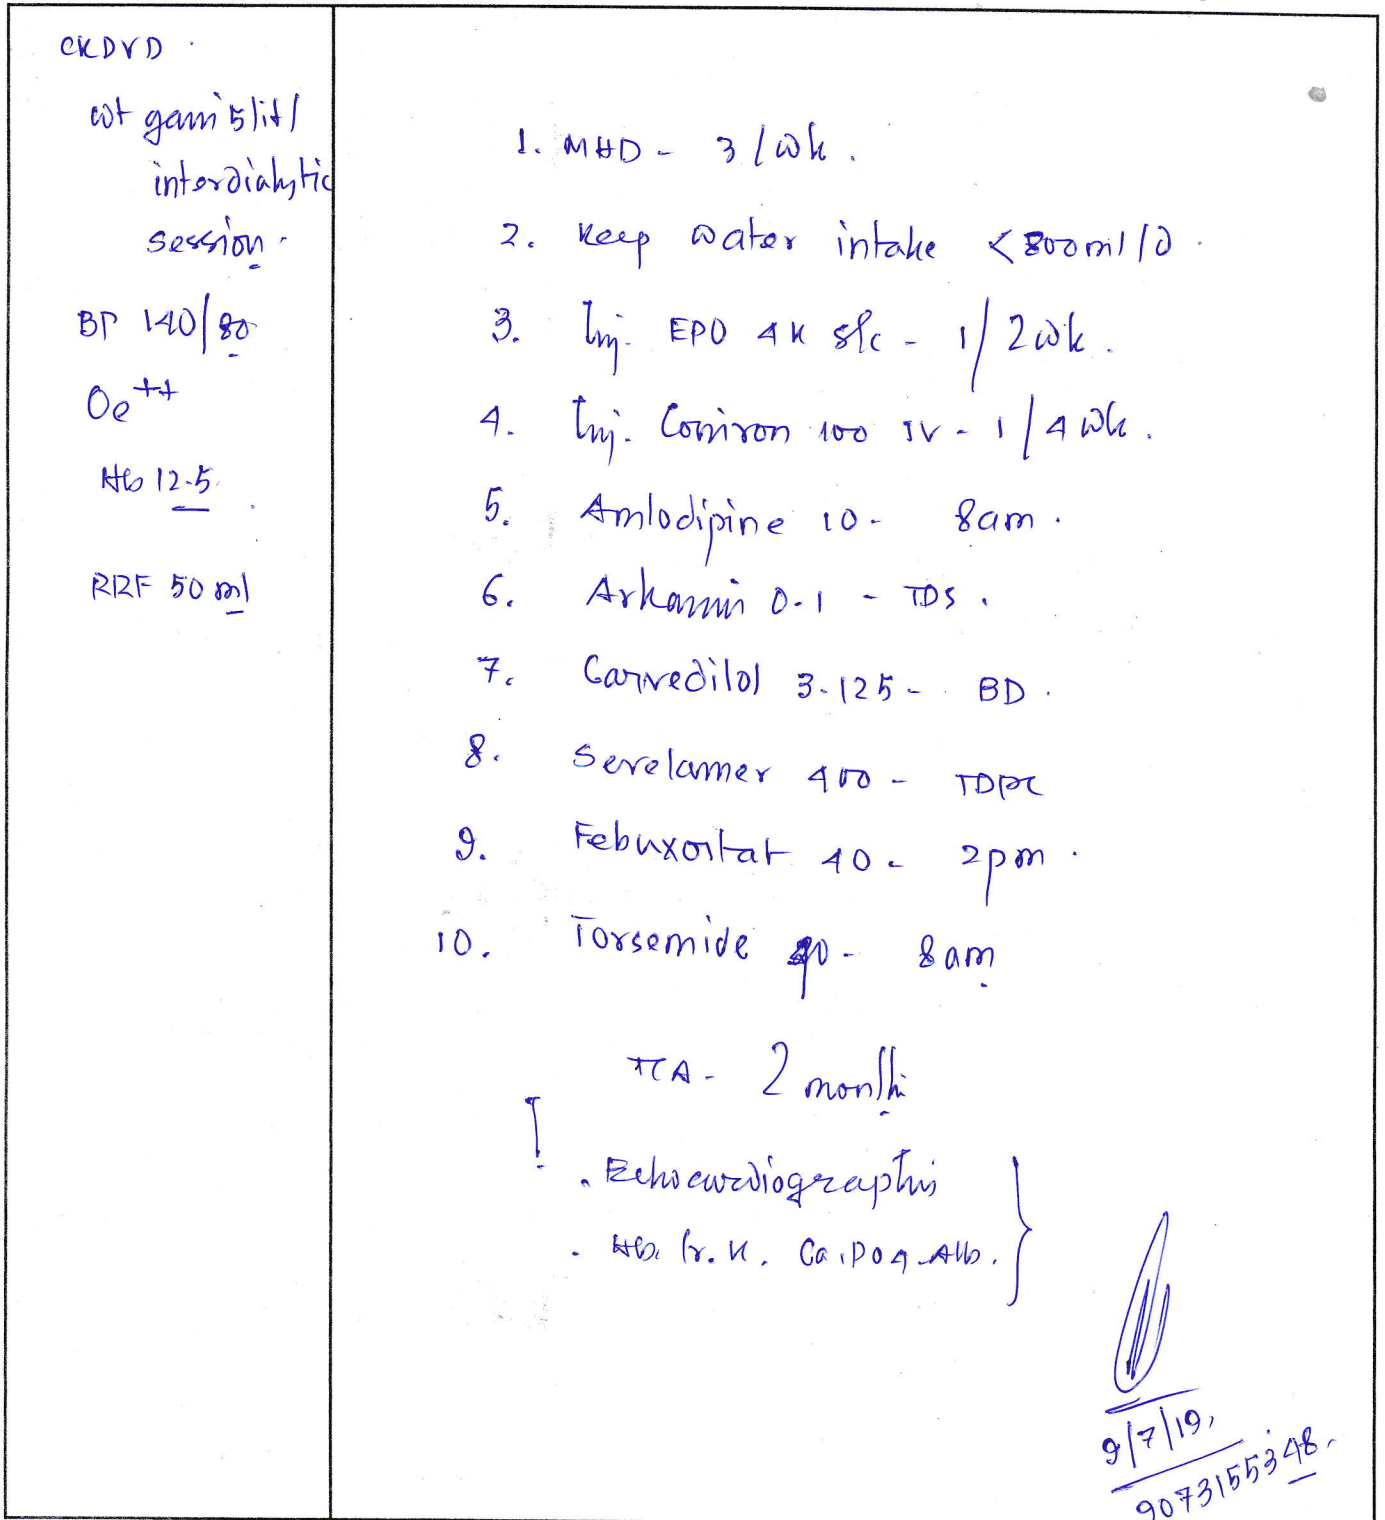 CKDVD
wt gain 5 lit/
interdialytic
session.
BP 140/80
Oe++
Hb 12.5
RRF 50 ml
1. MHD - 3/wk.
2. Keep water intake <800ml/d.
3. Inj. EPO 4K s/c - 1/2wk.
4. Inj. Coniron 100 IV - 1/4wk.
5. Amlodipine 10 - 8am.
6. Arkamin 0.1 - TDS.
7. Carvedilol 3.125 - BD.
8. Sevelamer 400 - TDPC
9. Febuxostat 40 - 2pm.
10. Torsemide - 8am
TCA - 2 months
. Echocardiography
. Hb. Cr. K. Ca. PO4 Alb.
9/7/19,
9073155348.